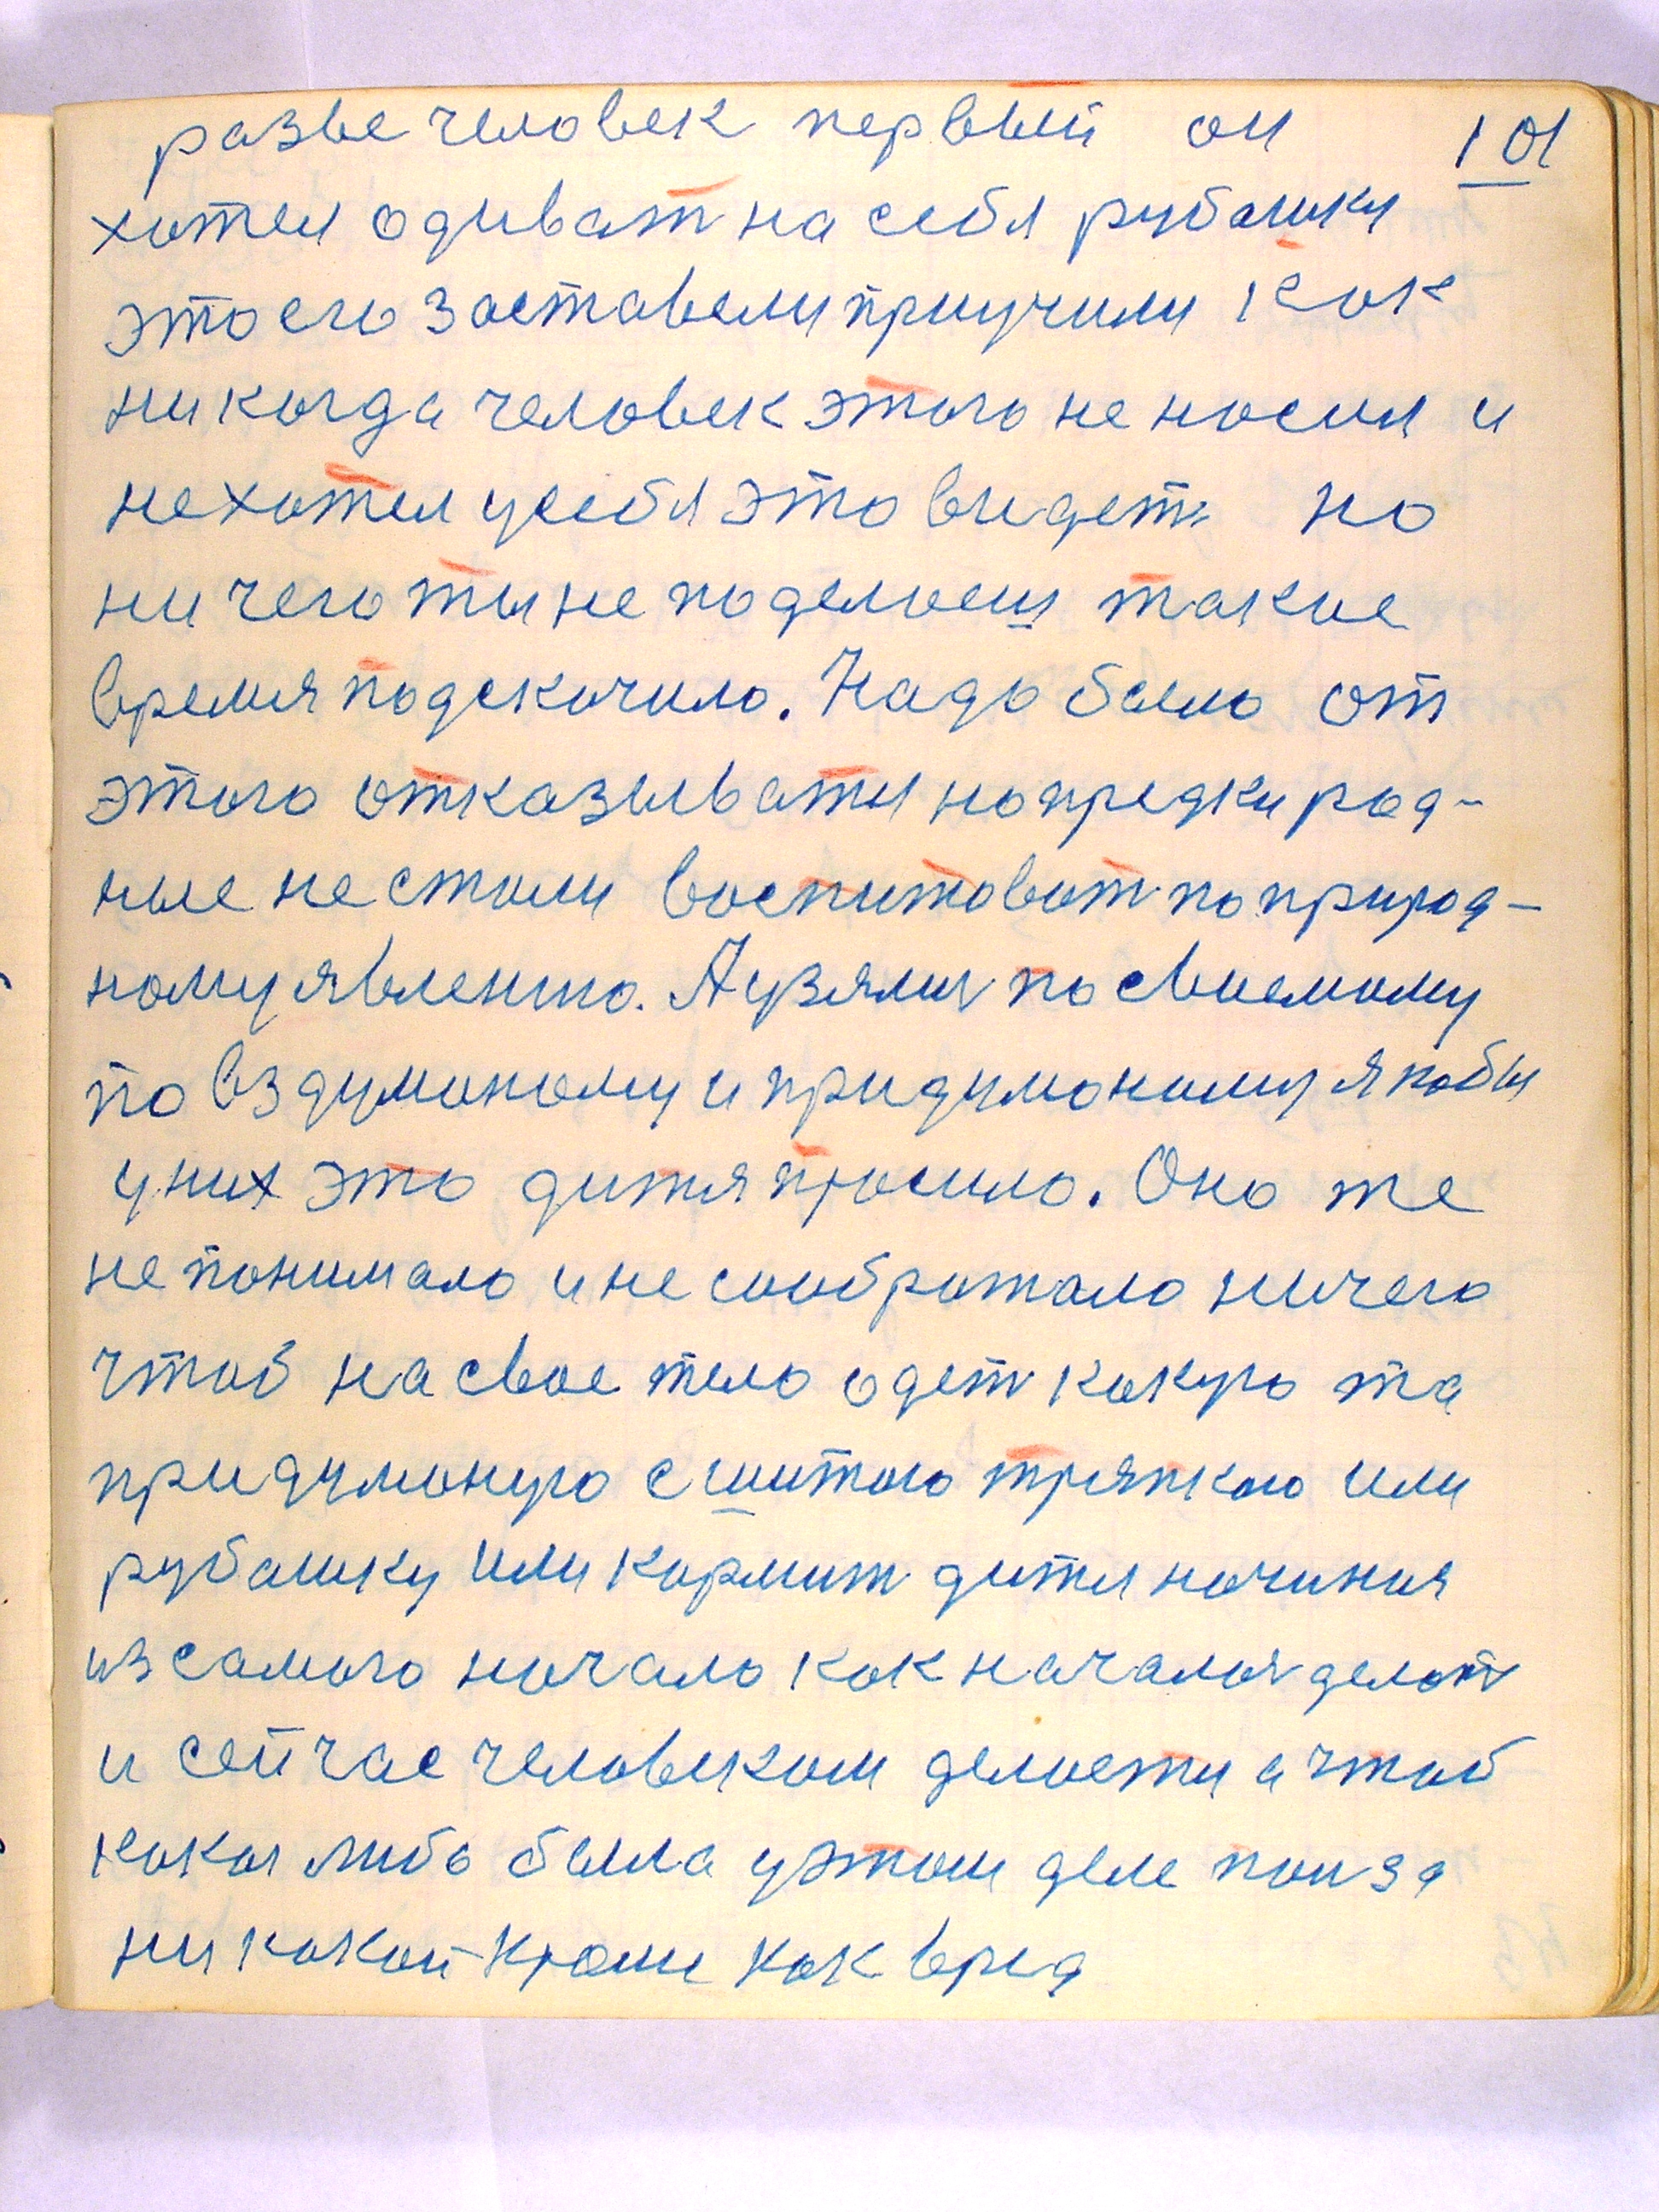 разве человек первый он 101
хотел одиват на себя рубашку
это его заставели приучили как
ни когда человек этого не носил и
не хотел у себя это видеть но
ни чего ты не поделоеш такие
время подскочило. Надо было от
этого отказыватя но предки род-
ные не стали воспитоват по природ-
ному явлению. А узяли по своемому
по вздуманому и придуманому якобы
у них это дитя просило. Оно же
не понимало и не соображало ничего
чтоб на свое тело одеть какую та
придуманую сшитого тряпкаю или
рубашку или кормит дитя начиная
из самого начало как началои делот
и сейчас человеком делоетя а чтоб
какая либо была у этом деле ползa
ни какой кроме как вред